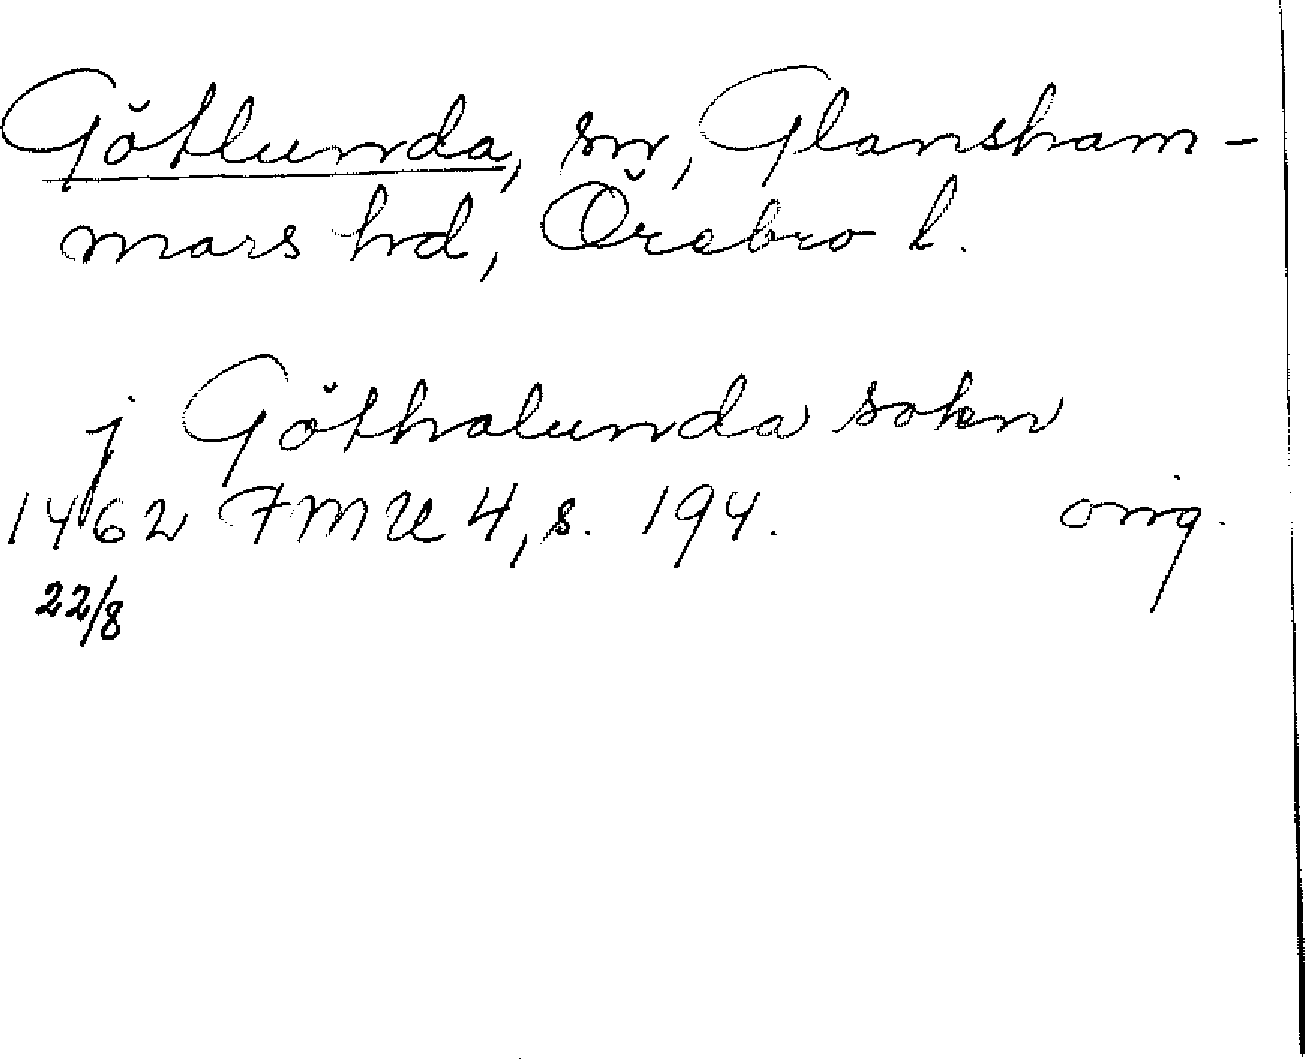 Götlunda, sn, Glansham-
mars hd, Örebro l.
j Göthalunda sokn
1462 FMU 4, s. 194. orig.
22/8